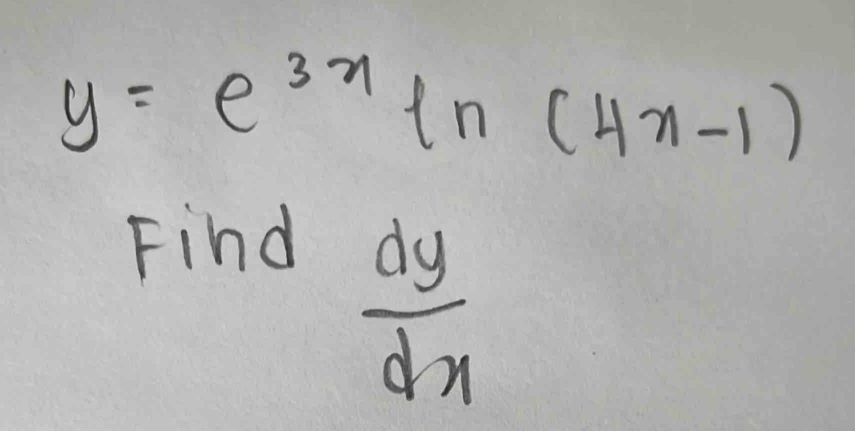 y = e^{3x} ln (4x-1)
Find \frac{dy}{dx}